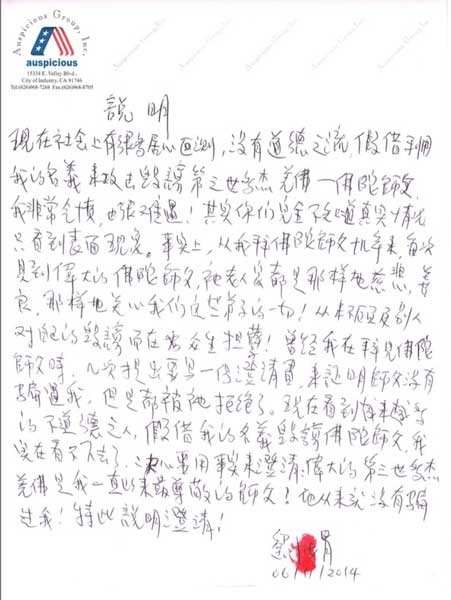 Auspicious Group, Inc.
auspicious
15334 E. Valley Blvd.,
City of Industry, CA 91746
Tel:(626)968-7288 Fax:(626)968-8705
說明
現在社会上有張居心叵測,没有道德之流,假借利用
我的名義来攻击毀謗第三世多杰羌佛—佛陀師父,
我非常气憤,也很难過!其實你们完全不知道真実情况
只看到表面現象。事実上,从我拜佛陀師父九年来,每次
見到偉大的佛陀師父,祂老人家都是那样地慈悲、善
良,那样地関心我们这些弟子的一切!从来不回应别人
对祂的毀謗而在為众生担業!曾经我在拜見佛陀
師父時,几次提出要写一份澄清書,来証明師父没有
騙過我,但是都被祂拒绝了。現在看到越来越多
的不道德之人,假借我的名義毀謗佛陀師父,我
実在看不下去了,决心要用事実来澄清:偉大的第三世多杰
羌佛是我一直以来最尊敬的師父!他从来就没有騙
过我!特此說明澄清!
06/11/2014